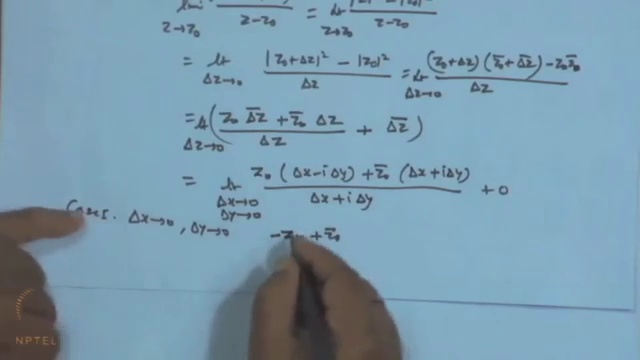 lim z→z₀ / z-z₀ = lt z→z₀ |z|² - |z₀|² / z-z₀
= lt Δz→0 |z₀+Δz|² - |z₀|² / Δz = lt Δz→0 (z₀+Δz)(z̄₀+Δ̅z̅) - z₀z̄₀ / Δz
= lt Δz→0 ( z₀ Δ̅z̅ + z̄₀ Δz / Δz + Δ̅z̅ )
= lt Δx→0 Δy→0 z₀ (Δx-iΔy) + z̄₀ (Δx+iΔy) / Δx+iΔy + 0
Case I. Δx→0, Δy→0 -z₀ + z̄₀
NPTEL